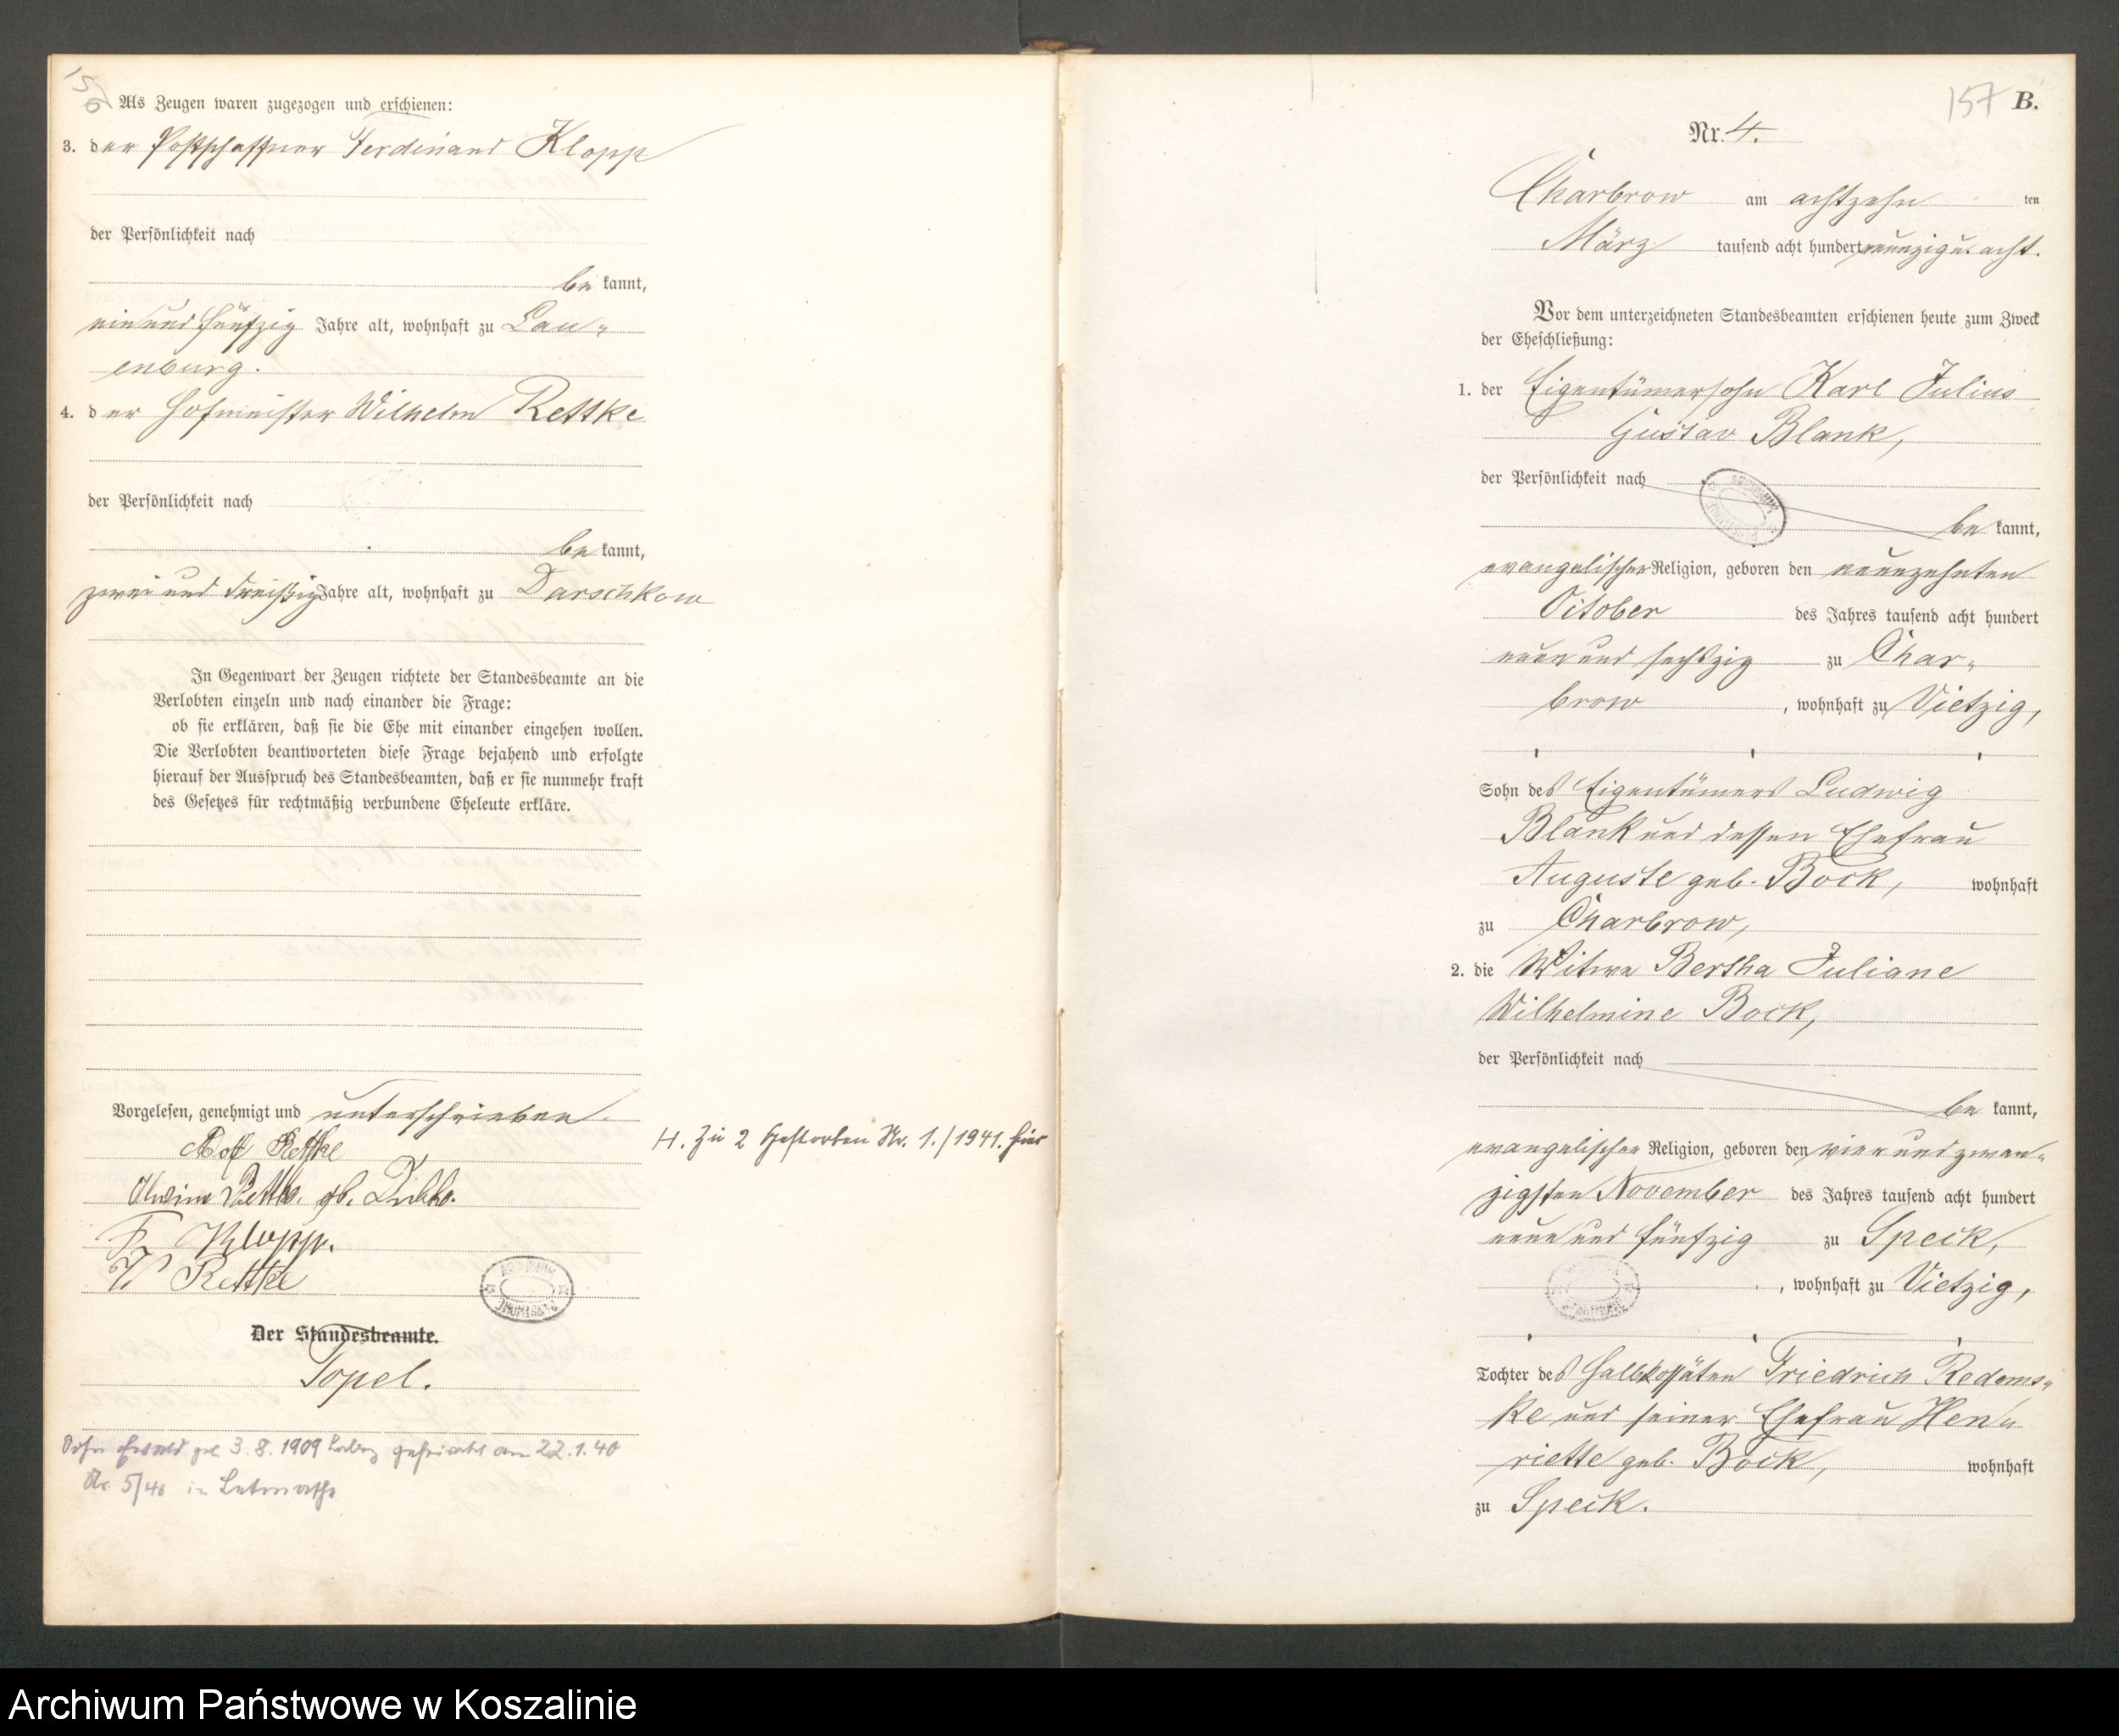 156
Als Zeugen waren zugezogen und erschienen:
3. der Postschaffner Ferdinand Klopp
der Persönlichkeit nach
bekannt,
ein und fünfzig Jahre alt, wohnhaft zu Lau-
enburg.
4. der Hofmeister Wilhelm Rettke
der Persönlichkeit nach
bekannt,
zwei und dreißig Jahre alt, wohnhaft zu Darschkow
In Gegenwart der Zeugen richtete der Standesbeamte an die
Verlobten einzeln und nach einander die Frage:
ob sie erklären, daß sie die Ehe mit einander eingehen wollen.
Die Verlobten beantworteten diese Frage bejahend und erfolgte
hierauf der Ausspruch des Standesbeamten, daß er sie nunmehr kraft
des Gesetzes für rechtmäßig verbundene Eheleute erkläre.
Vorgelesen, genehmigt und unterschrieben.
Adolf Rettke
Alwine Rettke. gb.
F. Klopp.
W Rettke
Der Standesbeamte.
Topel.
H. Zu 2 Gestorben Nr. 1./1941. hier
Sohn Ewald geb. 3.8.1909 geheiratet am 22.1.40
Nr. 5/40 in Letmathe
157 B.
Nr. 4.
Charbrow am achtzehn ten
März tausend acht hundert neunzig u. acht.
Vor dem unterzeichneten Standesbeamten erschienen heute zum Zweck
der Eheschließung:
1. der Eigentümersohn Karl Julius
Gustav Blank,
der Persönlichkeit nach
bekannt,
evangelischer Religion, geboren den neunzehnten
October des Jahres tausend acht hundert
neun und sechszig zu Char-
brow, wohnhaft zu Vietzig,
Sohn des Eigentümers Ludwig
Blank und dessen Ehefrau
Auguste geb. Bock, wohnhaft
zu Charbrow,
2. die Witwe Bertha Juliane
Wilhelmine Bock,
der Persönlichkeit nach
bekannt,
evangelischer Religion, geboren den vier und zwan-
zigsten November des Jahres tausend acht hundert
neun und fünfzig zu Speck,
, wohnhaft zu Vietzig,
Tochter des Halbkossäten Friedrich Redoms-
ke und seiner Ehefrau Hen-
riette geb. Bock, wohnhaft
zu Speck.
Archiwum Państwowe w Koszalinie